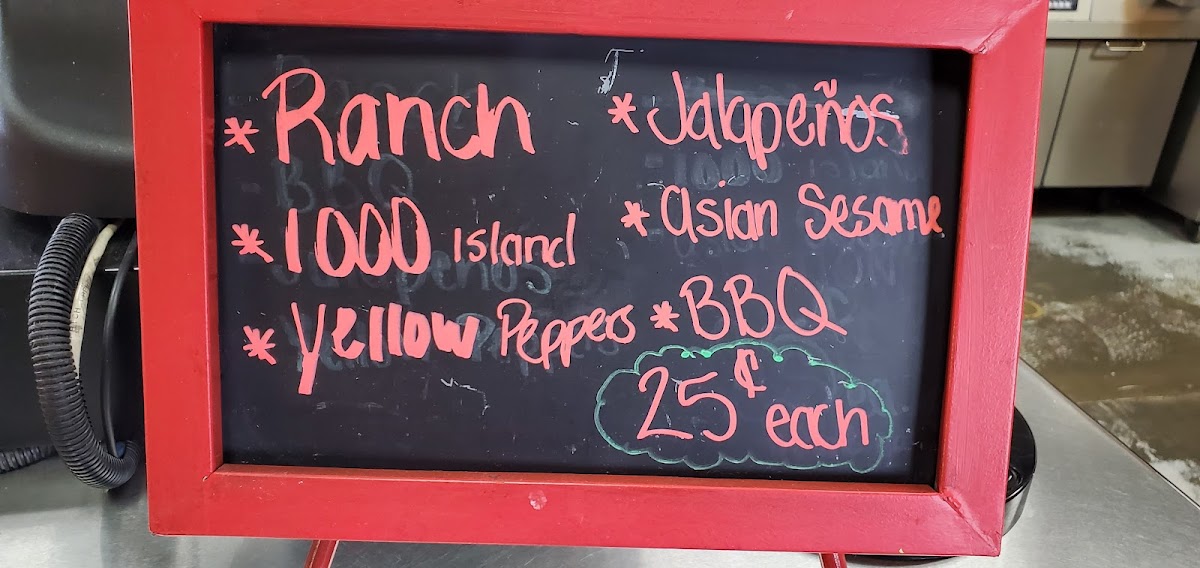 * Ranch
* 1000 island
* Yellow Peppers
* Jalapeños
* asian Sesame
* BBQ
25¢ each